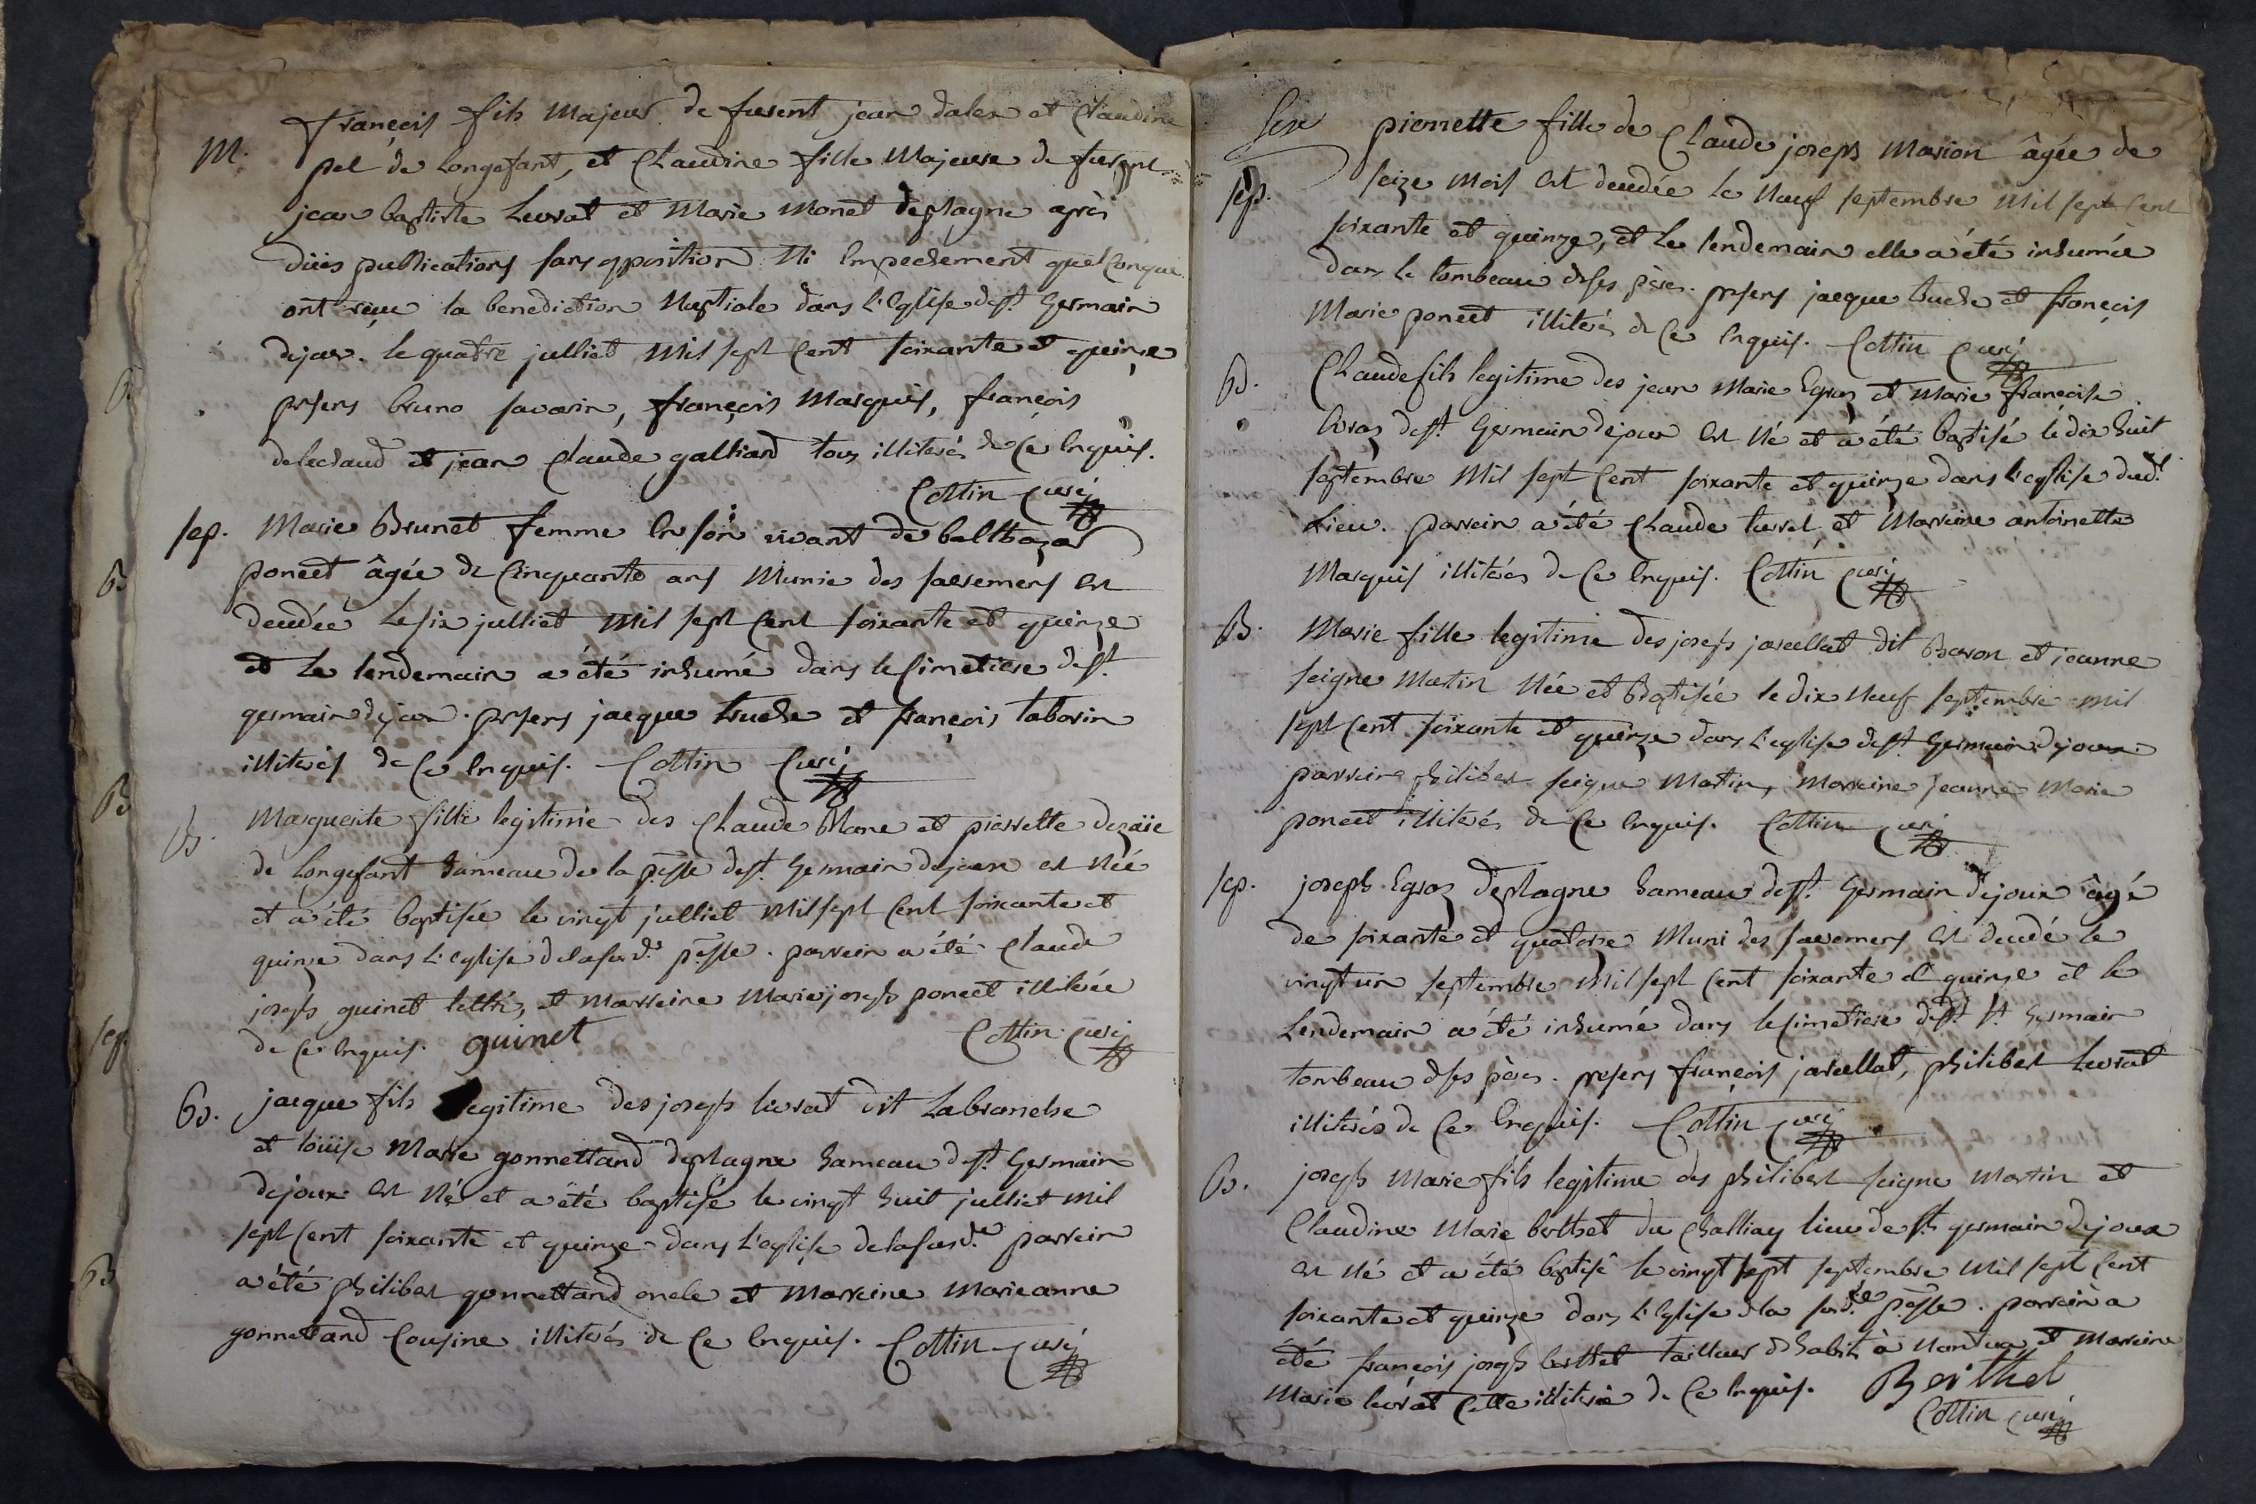 M.
françois fils majeur de furent jean dalex et Claudine
pel de Longefant, et Claudine fille majeure de furent
jean baptiste Levrat et Marie Monet deplagne après
dües publications sans opposition ni empechement quelconque
ont reçu la benediction nuptiale dans l'Eglise de st. Germain
dejoux. le quatre julliet mil sept cent soixante et quinze
presens bruno savarin, françois Marquis, françois
delechaud et jean Claude galliard tous illiterés de ce enquis.
Cottin curé
sep.
Marie Brunet femme en son vivant de balthazar
poncet âgée de cinquante ans munie des sacremens est
decedée le six julliet mil sept cent soixante et quinze
et le lendemain a été inhumé dans le cimetiere de st.
germain dejoux. presens jacque truche et françois taborin
illiterés de ce enquis. Cottin Curé
B.
Marguerite fille legitime des Claude Blanc et pierrette
de Longefant hameau de la psse de st. Germain dejoux est née
et a été baptisée le vingt julliet mil sept cent soixante et
quinze dans l'eglise de la susd. psse. parrein a été Claude
joseph guinet lettré, et marreine Marie joseph poncet illiterée
de ce enquis. guinet Cottin curé
B.
jacque fils legitime des joseph livrat dit Labranche
et loüise Marie gonnettand deplagne hameau de st. Germain
dejoux est né et a été baptisé le vingt huit julliet mil
sept cent soixante et quinze dans l'eglise de la susd.e parrein
a été philibert gonnettand oncle et marreine Marieanne
gonnettand cousine illiterés de ce enquis. Cottin curé
B
B
B
sep
B
sep.
pierrette fille de Claude joseph Marion âgée de
seize mois est decedée le neuf septembre mil sept cent
soixante et quinze, et le lendemain elle a été inhumée
dans le tombeau de ses pères. presens jacque truche et françois
Marie poncet illiterés de ce enquis. Cottin curé
B.
Claude fils legitime des jean Marie Egraz et Marie françoise
de st. Germain dejoux est né et a été baptisé le dix huit
septembre mil sept cent soixante et quinze dans l'eglise dud.
lieu. parrein a été Claude turrel et Marreine antoinette
Marquis illiterés de ce enquis. Cottin curé
B.
Marie fille legitime des joseph jarcellat dit Baron et jeanne
seigne Martin née et Baptisée le dix neuf septembre mil
sept cent soixante et quinze dans l'eglise de st. Germain dejoux
parrein philibert seigne Martin, Marreine jeanne Marie
poncet illiterés de ce enquis. Cottin curé
sep.
joseph Egraz deplagne hameau de st. Germain dejoux âgé
de soixante et quatorze muni des sacremens est decedé le
vingt un septembre mil sept cent soixante et quinze et le
Lendemain a été inhumé dans le cimetiere dud. st. Germain
tombeau de ses pères. presens françois jarcellat, philibert Levrat
illiterés de ce enquis. Cottin curé
B.
joseph Marie fils legitime des philibert seigne Martin et
Claudine Marie berthet du Challiay lieu de st. germain dejoux
est né et a été baptisé le vingt sept septembre mil sept cent
soixante et quinze dans l'Eglise de la susd.te psse. parrein a
été françois joseph berthet tailleur d'habits à Nantua, et Marreine
Marie levrat cette illiterée de ce enquis. Berthet
Cottin curé